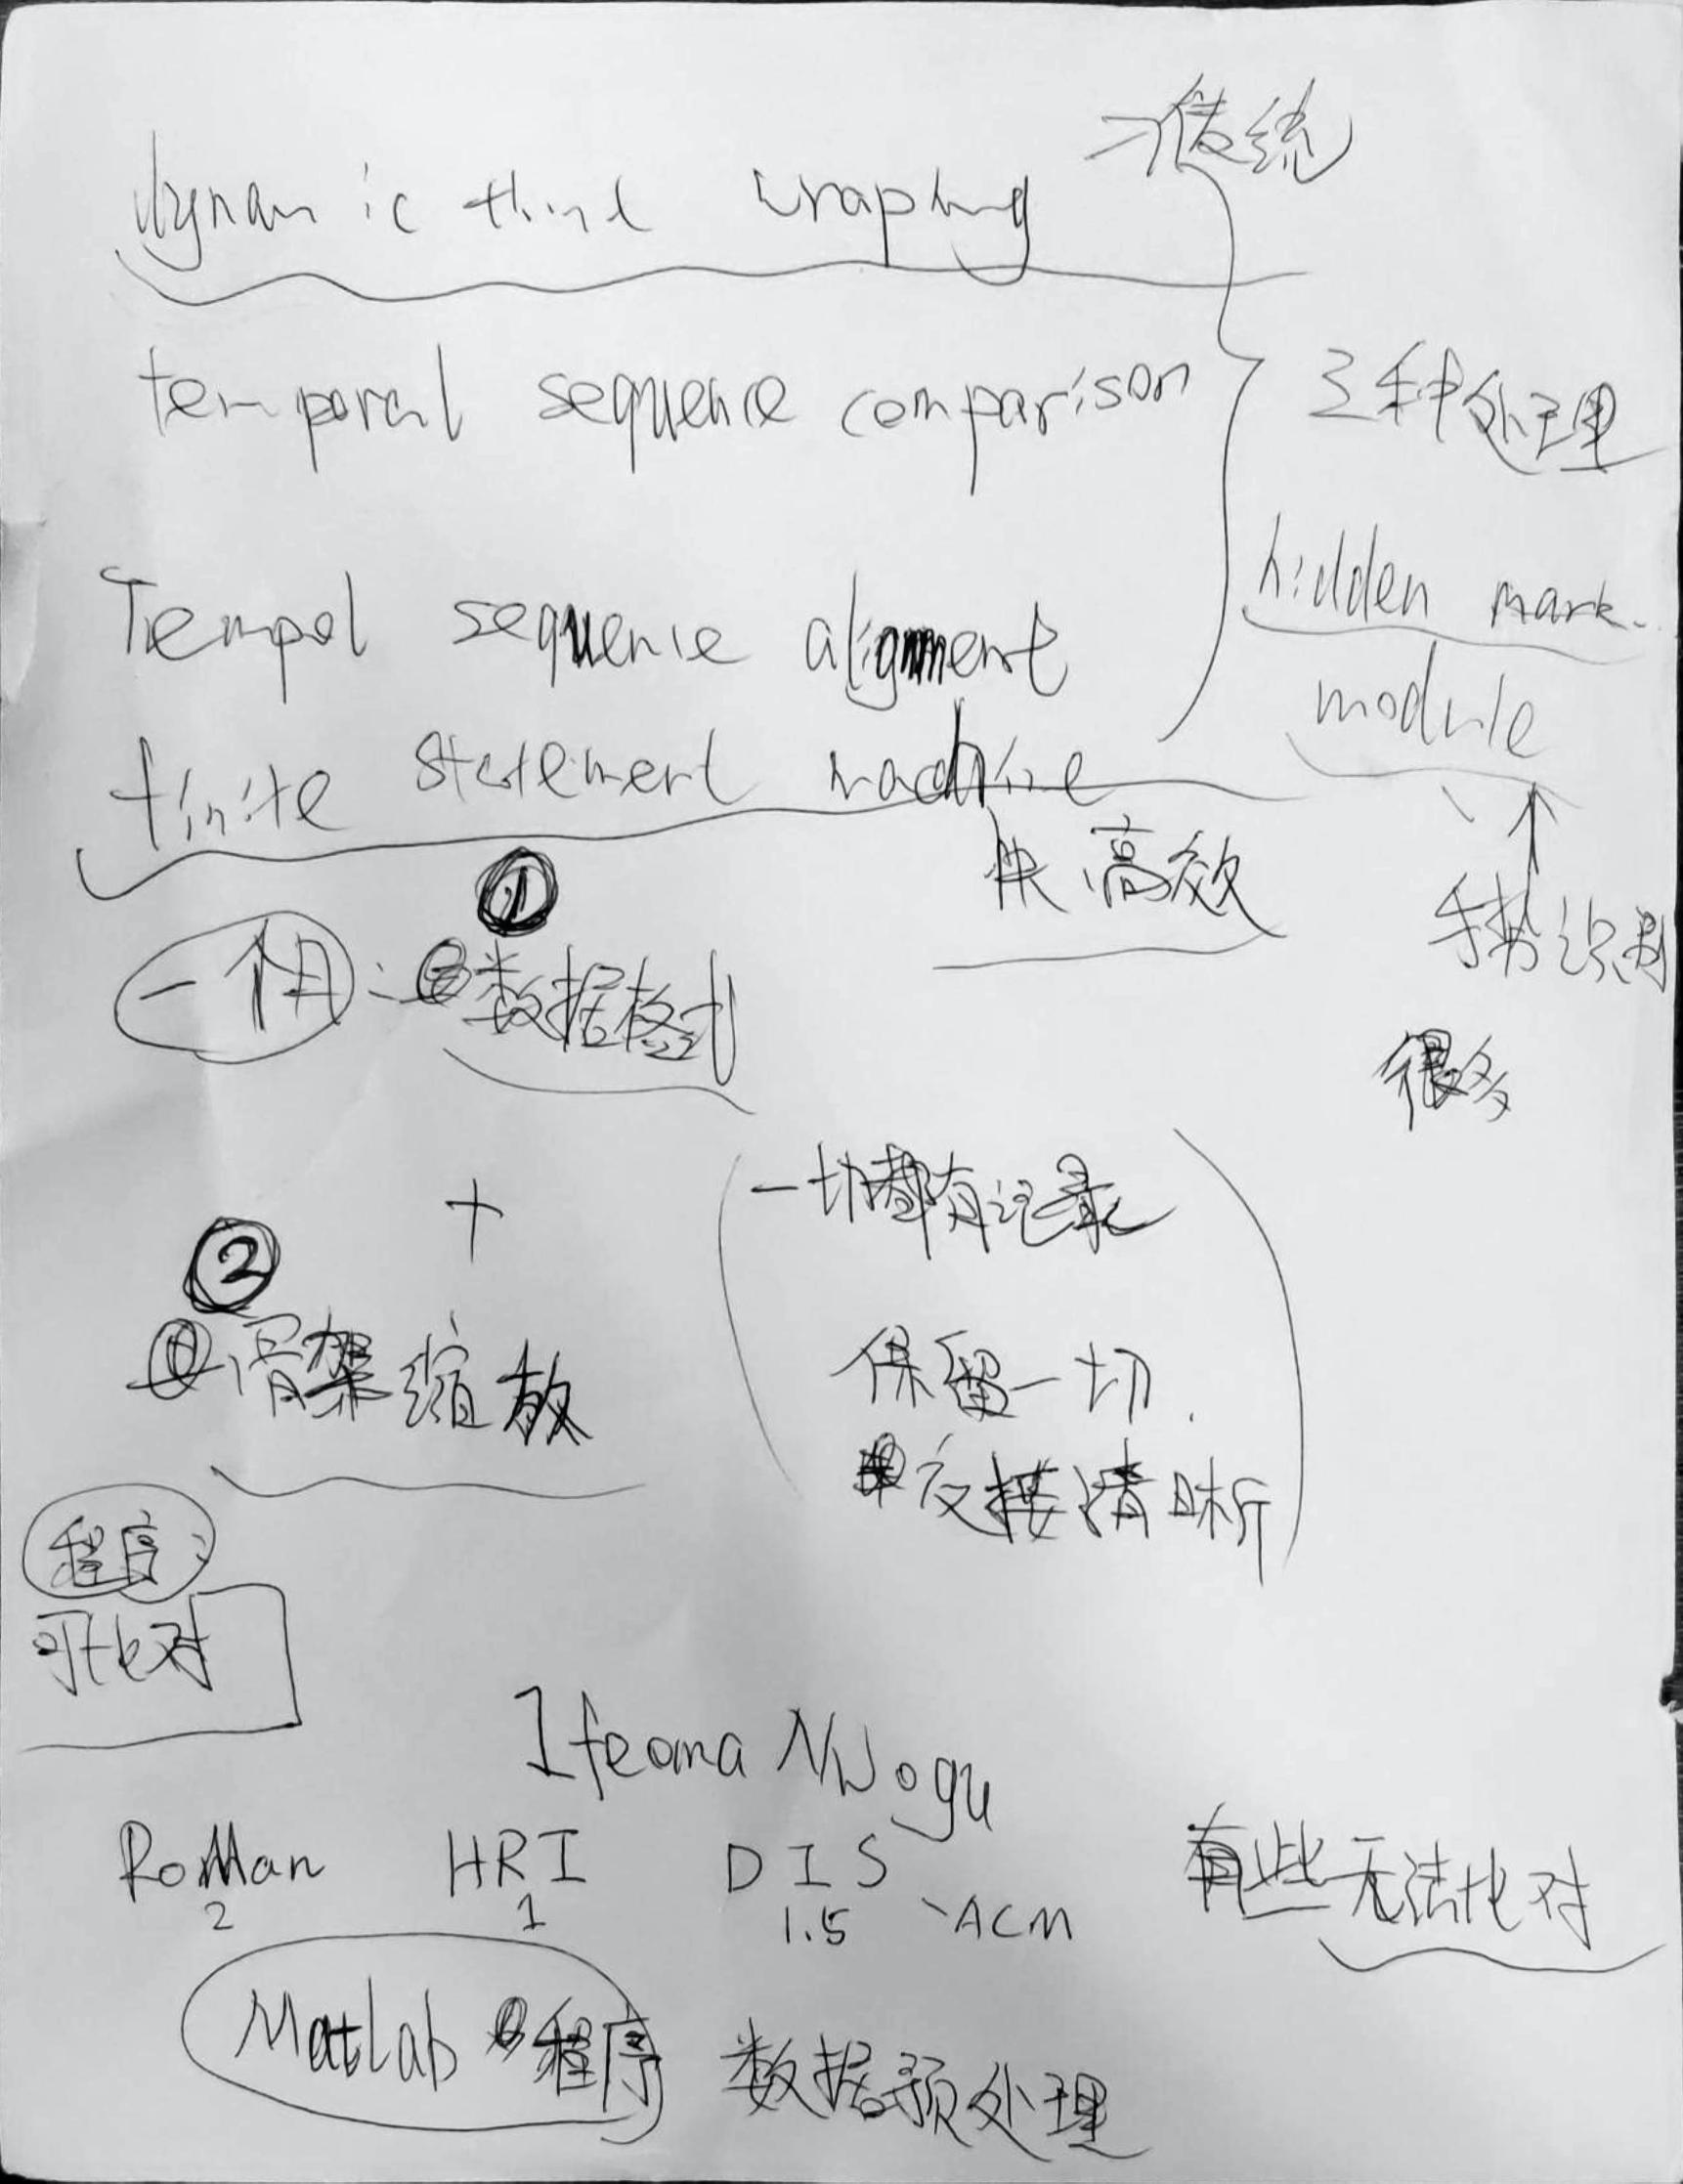 →传统
dynamic time wraping
temporal sequence comparison
三种处理
Tempol sequence alignment
hidden mark.
module
finite statement machine
快 高效
手势识别
很多
①
一个月: 数据格式
+
一切都有记录
②
骨架缩放
保留一切.
交接清晰
程序:
可比对
Ifeoma NWogu
RoMan HRI DIS
2 1 1.5 、ACM
有些无法比对
Matlab 程序 数据预处理